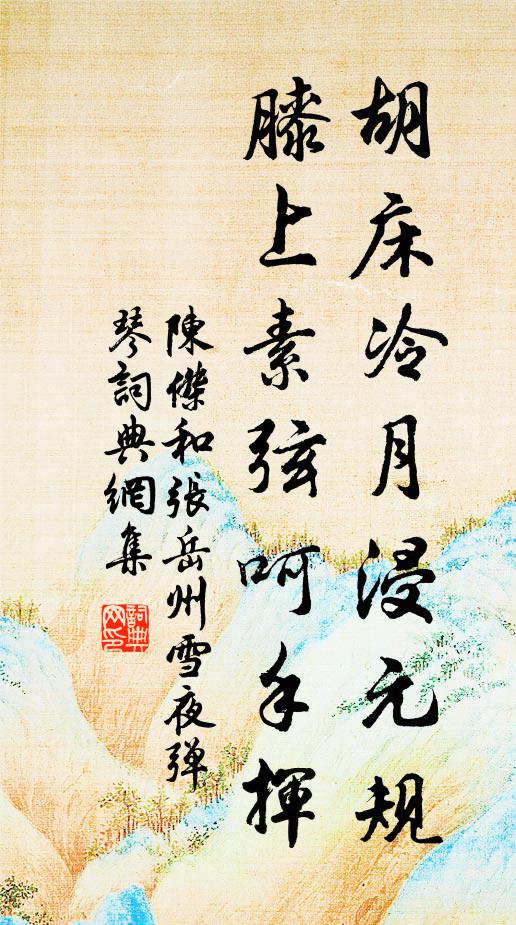 胡床冷月浸元規
膝上素弦呵手揮
陳傑和張岳州雪夜弹
琴詞典網集
詞典